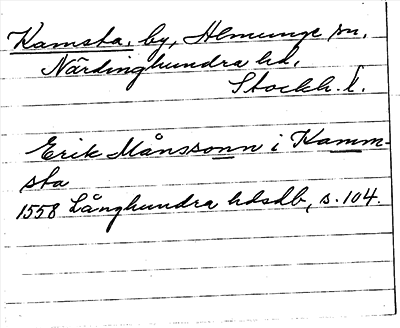 Kamsta, by, Almunge sn,
Närdinghundra hd,
Stockh. l.
Erik Månssonn i Kamm-
sta
1558 Långhundra hdsdb, s. 104.